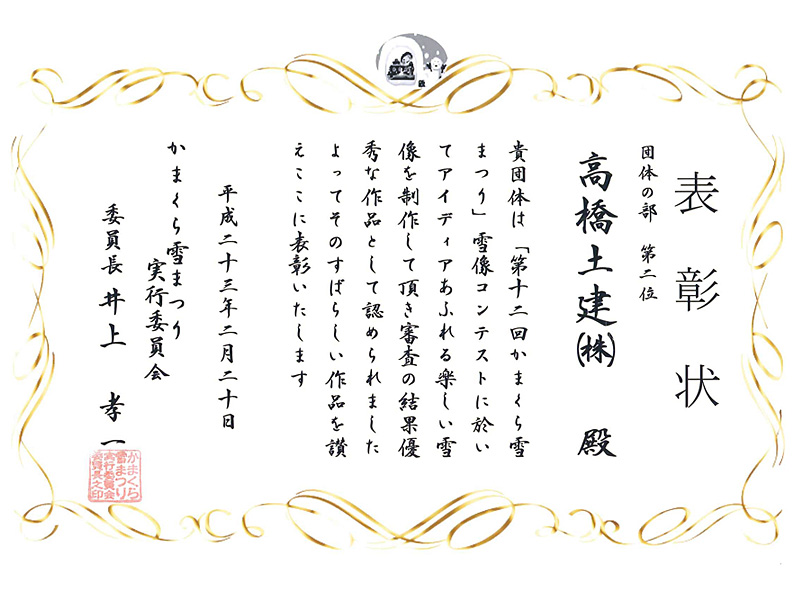 表彰状
団体の部 第二位
高橋土建㈱ 殿
貴団体は「第十二回かまくら雪
まつり」雪像コンテストに於い
てアイディアあふれる楽しい雪
像を制作して頂き審査の結果優
秀な作品として認められました
よってそのすばらしい作品を讃
えここに表彰いたします
平成二十三年二月二十日
かまくら雪まつり
実行委員会
委員長 井上 孝一
かまくら
雪まつり
実行委員会
委員長之印